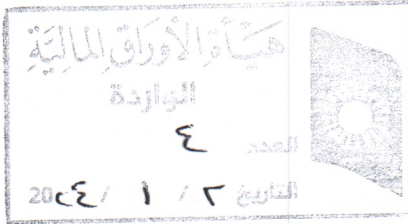 هيأة الأوراق المالية
الواردة
العدد ٤
التاريخ ٢ / ١ / 20٢٤